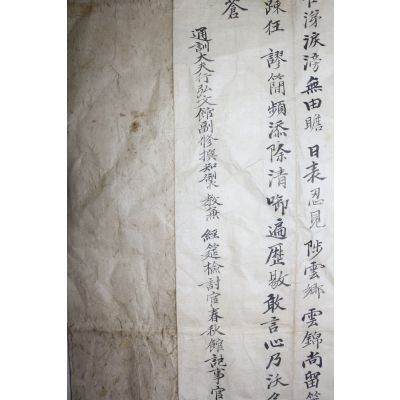 涕淚滂無由瞻 日表忍見 陟雲鄉雲錦尚留
踈狂 謬簡頻添除清啣遍歷敭敢言心乃沃
蒼
通訓大夫行弘文館副修撰知製 敎兼 經筵檢討官春秋館記事官